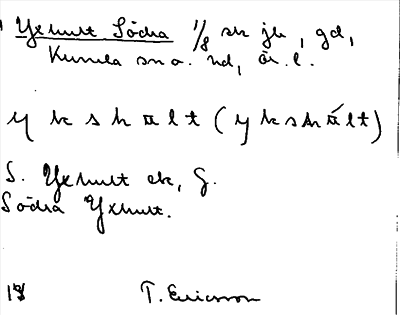 Yxhult Södra 1/8 sk jb, gd,
Kumla sn o. hd, Ör. l.
y k s h u l t (y k s h u l t)
S. Yxhult ek, G.
Södra Yxhult.
18 T. Ericsson